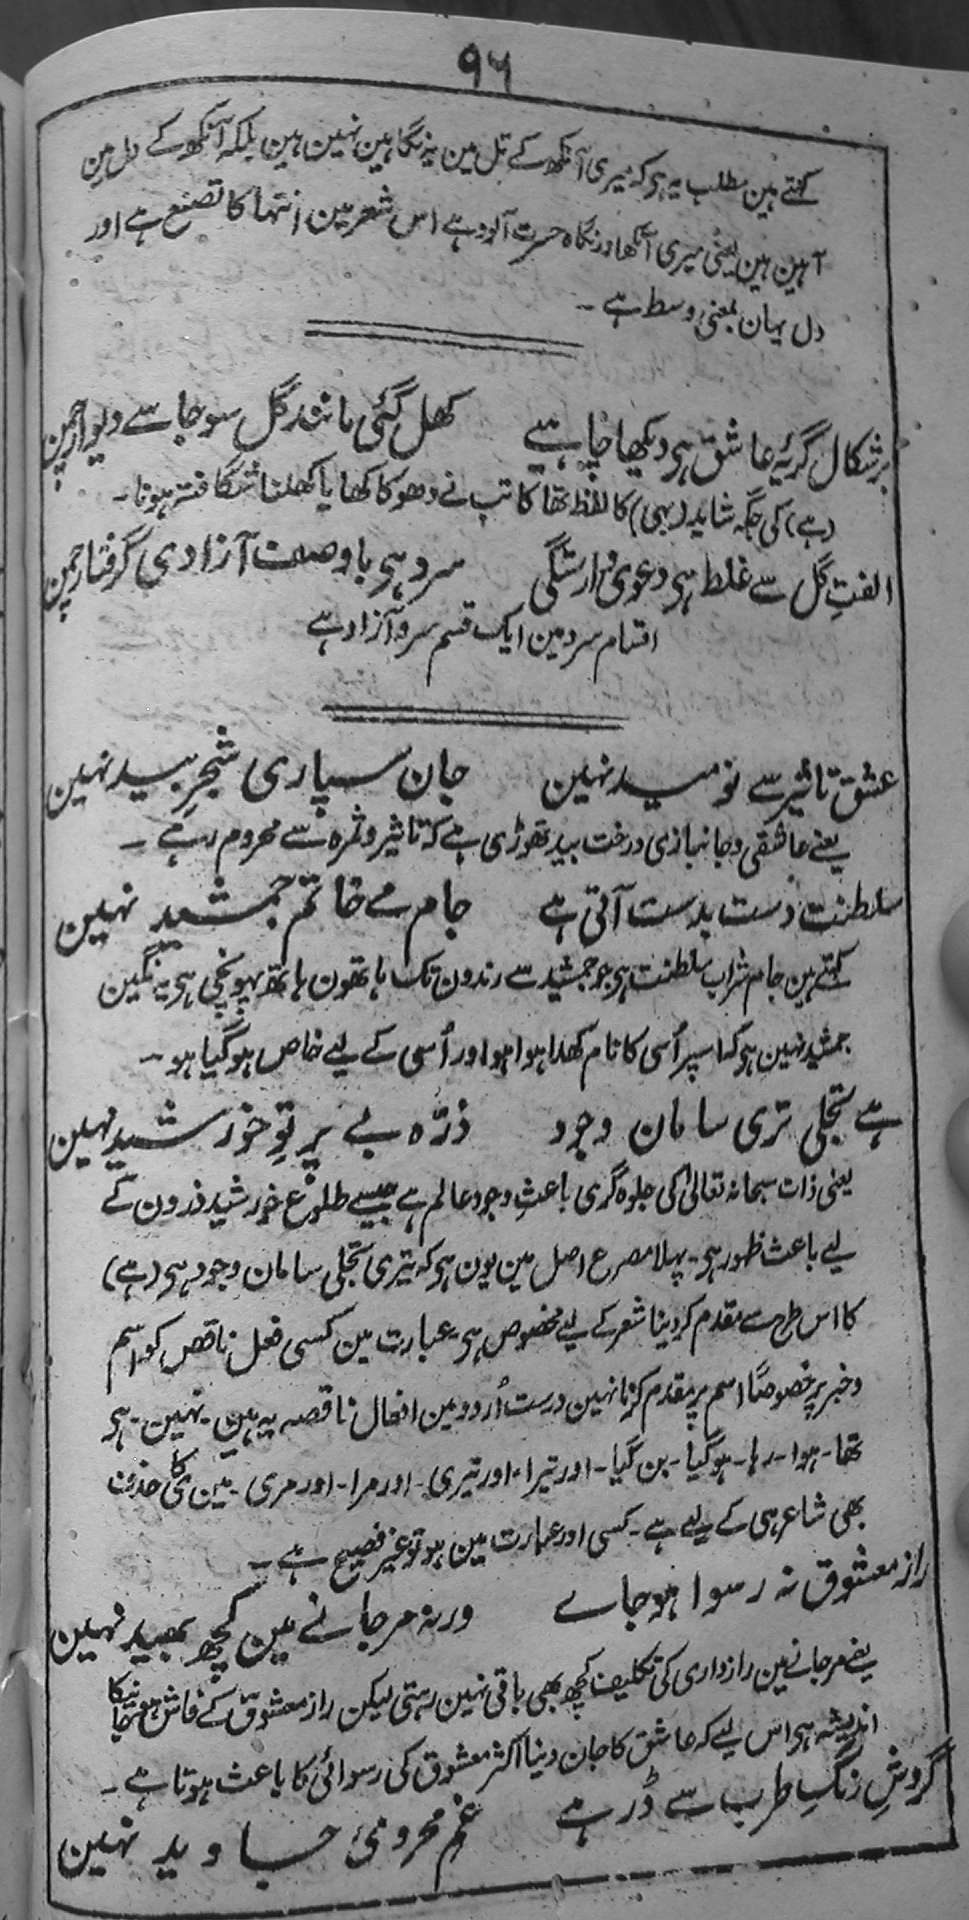 ۹۶
کہتے ہین مطلب یہ ہی کہ میری آنکھ کے تل مین یہ نگاہین نہین ہین بلکہ آنکھ کے دل مین
آہین ہین یعنی میری آنکھ اور نگاہ حسرت آلود ہے اس شعر مین انتہا کا تصنع ہے اور
دل یہان بمعنی وسط ہے ۔
برشکال گریۂ عاشق ہی دیکھا چاہیے کھل گئی مانند گل سو جا سے دیوار چمن
(ہے) کی جگہ شاید (بھی) کا لفظ تھا کاتب نے دھوکا کھایا کھلنا شگافتہ ہونا ۔
الفتِ گل سے غلط ہی دعوی وارستگی سرو ہی با وصف آزادی گرفتار چمن
اقسام سرو مین ایک قسم سرو آزاد ہے
عشق تاثیر سے نومید نہین جان سپاری شجرِ بید نہین
یعنے عاشقی و جانبازی درخت بید تھوڑی ہے کہ تاثیر و ثمرہ سے محروم رہے ۔
سلطنت دست بدست آتی ہے جام مے خاتم جمشید نہین
کہتے ہین جام شراب سلطنت ہی جو جمشید سے رندون تک ہاتھون ہاتھ پہونچی ہی یہ نگین
جمشید نہین ہی کہ اسپر اُسی کا نام کھدا ہوا ہو اور اُسی کے لیے خاص ہو گیا ہو ۔
ہے تجلی تری سامان وجود ذرّہ بے پرتوِ خورشید نہین
یعنی ذات سبحانہ تعالیٰ کی جلوہ گری باعثِ وجود عالم ہے جیسے طلوع خورشید ذرون کے
لیے باعث ظہور ہی ۔ پہلا مصرع اصل مین یون ہی کہ تیری تجلی سامان وجود ہی (ہے)
کا اس طرح سے مقدم کر دینا شعر کے لیے مخصوص ہی عبارت مین کسی فعل ناقص کو اسم
و خبر پر خصوصاً اسم پر مقدم کرنا نہین درست اُردو مین افعال ناقصہ یہ ہین ۔ نہین ۔ ہی
تھا ۔ ہوا ۔ رہا ۔ ہو گیا ۔ بن گیا ۔ اور تیرا ۔ اور تیری ۔ اور مرا ۔ اور مری ۔ مین ی کا حذف
بھی شاعر ہی کے لیے ہے ۔ کسی اور عبارت مین ہو تو غیر فصیح ہے ۔
راز معشوق نہ رسوا ہو جاے ورنہ مر جانے مین کچھ بھید نہین
یعنے مر جانے مین رازداری کی تکلیف کچھ بھی باقی نہین رہتی لیکن راز معشوق کے فاش ہو جانیکا
اندیشہ ہی اس لیے کہ عاشق کا جان دینا اکثر معشوق کی رسوائی کا باعث ہوتا ہے ۔
گردشِ رنگِ طرب سے ڈر ہے غم محرومئ جاوید نہین